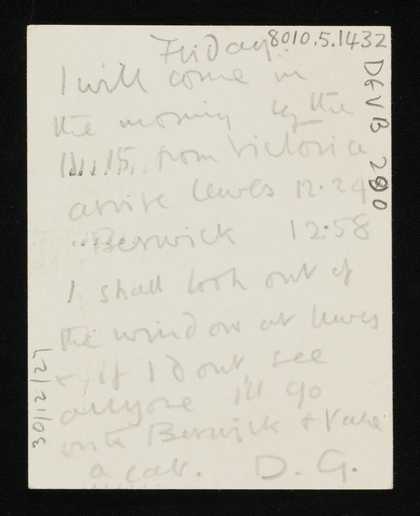 Friday.
8010.5.1432
I will come in
the morning by the
11.15. from Victoria
arrive Lewes 12.24
" Berwick 12.58
I shall look out of
the window at Lewes
& if I dont see
anyone I'll go
onto Berwick & take
a cab. D. G.
30/12/27